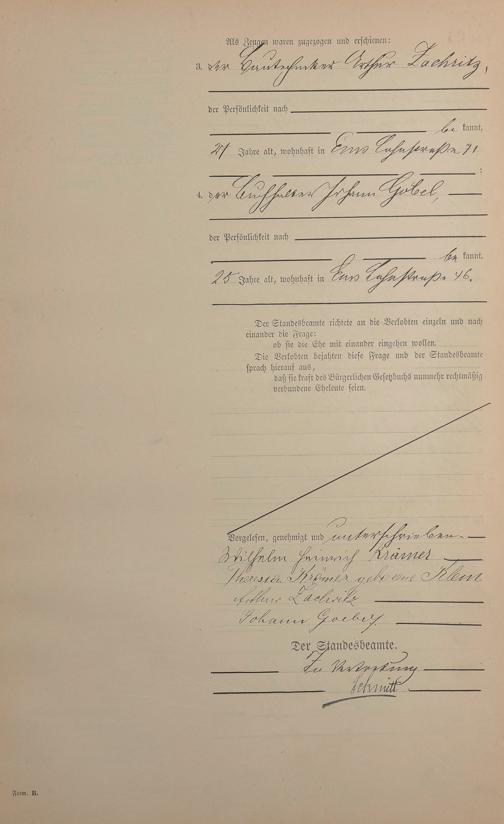 Als Zeugen waren zugezogen und erschienen:
3. der Bautechniker Arthur Zachritz,
der Persönlichkeit nach
be kannt,
27 Jahre alt, wohnhaft in Ems Lahnstraße 71
;
4. der Buchhalter Johann Göbel,
der Persönlichkeit nach
be kannt,
25 Jahre alt, wohnhaft in Ems Lahnstraße 46.
Der Standesbeamte richtete an die Verlobten einzeln und nach
einander die Frage:
ob sie die Ehe mit einander eingehen wollen.
Die Verlobten bejahten diese Frage und der Standesbeamte
sprach hierauf aus,
daß sie kraft des Bürgerlichen Gesetzbuchs nunmehr rechtmäßig
verbundene Eheleute seien.
Vorgelesen, genehmigt und unterschrieben.
Wilhelm Heinrich Krämer
Therese Krämer geborene Klein
Arthur Zachritz
Johann Goebel
Der Standesbeamte.
In Vertretung
Schmitt
Form. B.